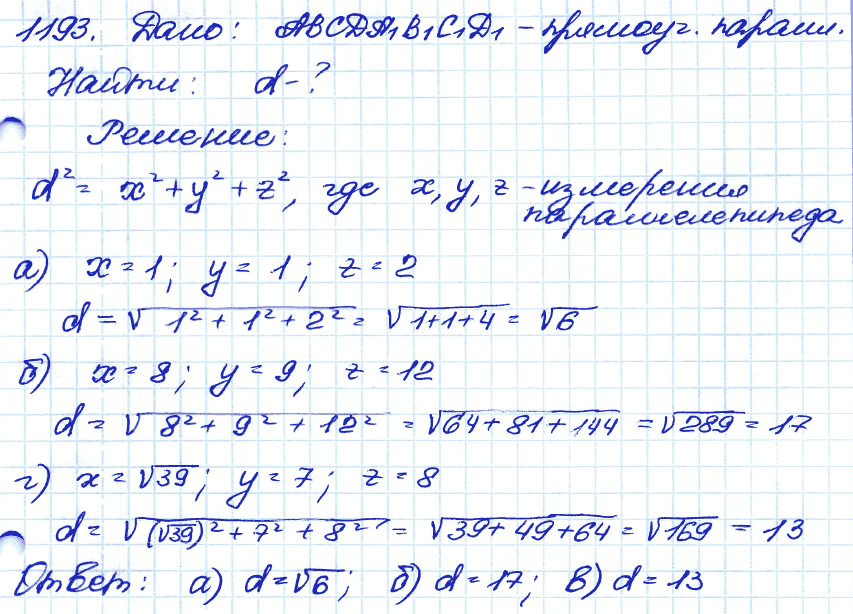 1193. Дано: ABCDA₁B₁C₁D₁ - прямоуг. паралл.
Найти: d - ?
Решение:
d² = x² + y² + z², где x, y, z - измерения
параллелепипеда
а) x = 1; y = 1; z = 2
d = √(1² + 1² + 2²) = √(1+1+4) = √6
б) x = 8; y = 9; z = 12
d = √(8² + 9² + 12²) = √(64 + 81 + 144) = √289 = 17
г) x = √39; y = 7; z = 8
d = √((√39)² + 7² + 8²) = √(39 + 49 + 64) = √169 = 13
Ответ: а) d = √6; б) d = 17; в) d = 13